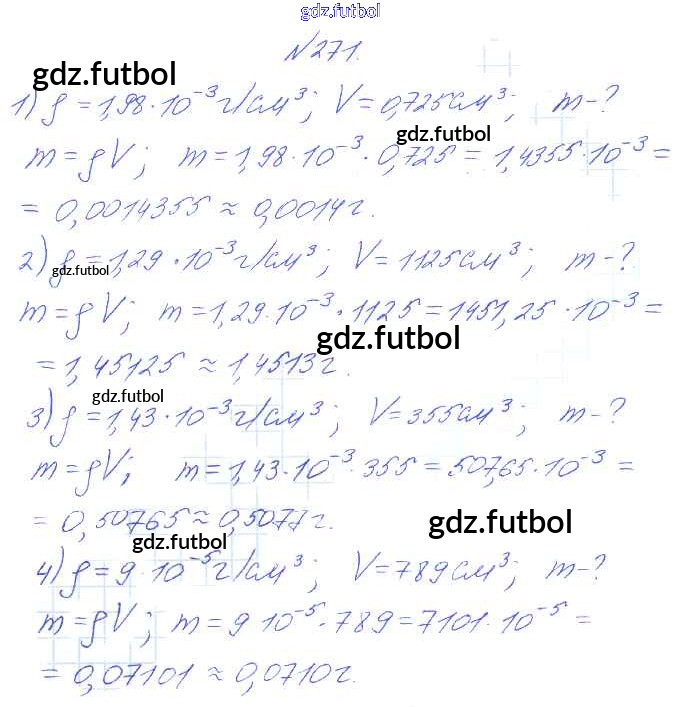 gdz.futbol
№271.
gdz.futbol
1) ρ = 1,98 · 10⁻³ г/см³; V = 0,725 см³; m - ?
gdz.futbol
m = ρV; m = 1,98 · 10⁻³ · 0,725 = 1,4355 · 10⁻³ =
= 0,0014355 ≈ 0,0014 г.
2) ρ = 1,29 · 10⁻³ г/см³; V = 1125 см³; m - ?
gdz.futbol
m = ρV; m = 1,29 · 10⁻³ · 1125 = 1451,25 · 10⁻³ =
gdz.futbol
= 1,45125 ≈ 1,4513 г.
gdz.futbol
3) ρ = 1,43 · 10⁻³ г/см³; V = 355 см³; m - ?
m = ρV; m = 1,43 · 10⁻³ · 355 = 507,65 · 10⁻³ =
= 0,50765 ≈ 0,5077 г.
gdz.futbol
gdz.futbol
4) ρ = 9 · 10⁻⁵ г/см³; V = 789 см³; m - ?
m = ρV; m = 9 · 10⁻⁵ · 789 = 7101 · 10⁻⁵ =
= 0,07101 ≈ 0,0710 г.